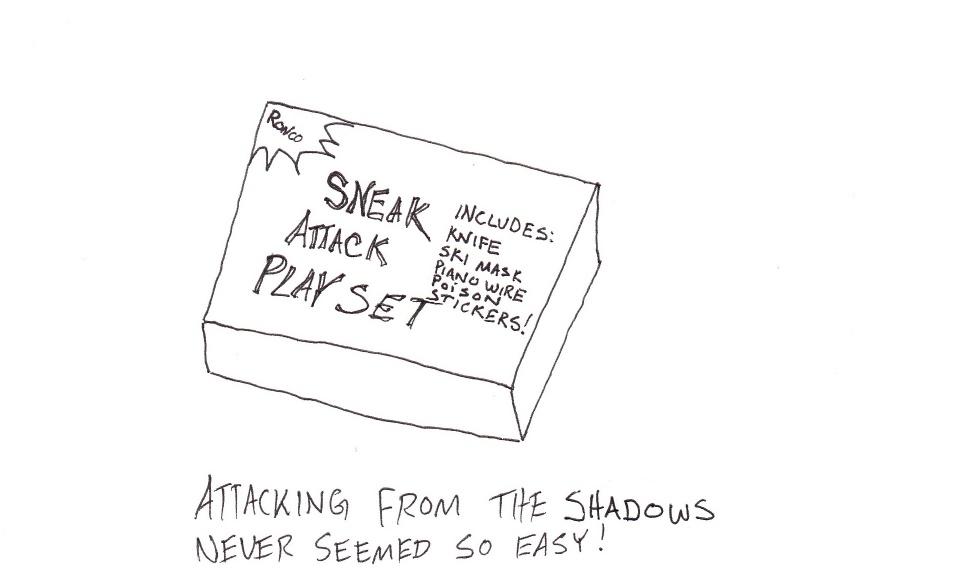 RONCO
SNEAK
ATTACK
PLAY SET
INCLUDES:
KNIFE
SKI MASK
PIANO WIRE
POISON
STICKERS!
ATTACKING FROM THE SHADOWS
NEVER SEEMED SO EASY!